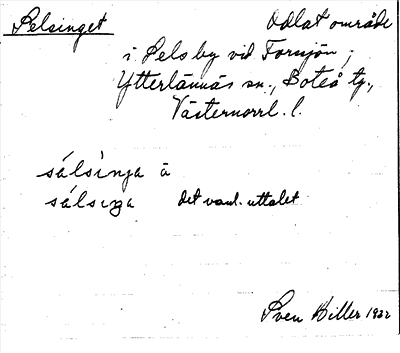 Selsinget Odlat område
i Selsby vid Forsjön;
Ytterlännäs sn., Boteå tg.,
Västernorrl. l.
sálsìŋa ä
sálsıŋa det vanl. uttalet
Sven Hiller 1922